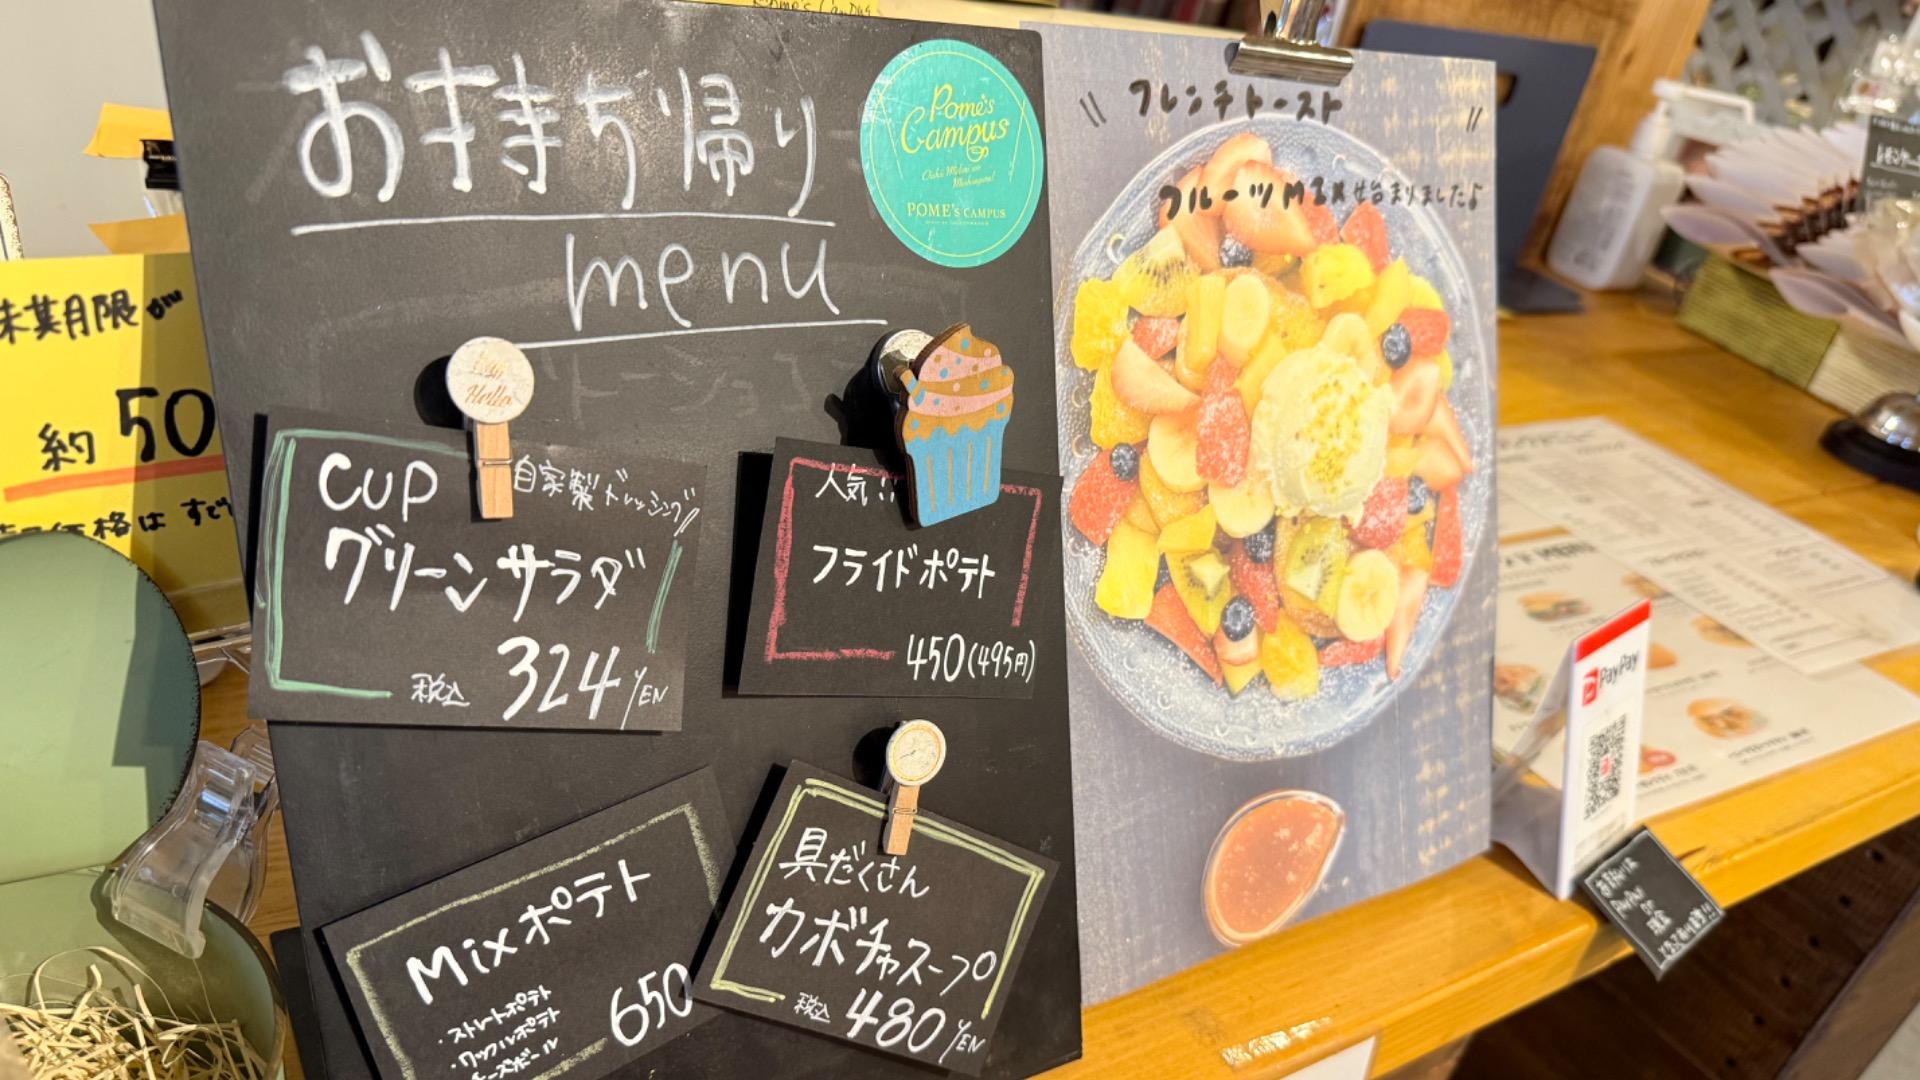 お持ち帰り
menu
Pome's
Campus
POME's CAMPUS
約 50
CUP
自家製ドレッシング
グリーンサラダ
税込 324 YEN
人気!!
フライドポテト
450(495円)
Mixポテト
・ストレートポテト
・ワッフルポテト
650
具だくさん
カボチャスープ
税込 480 YEN
フレンチトースト
フルーツMIX始まりましたよ
PayPay